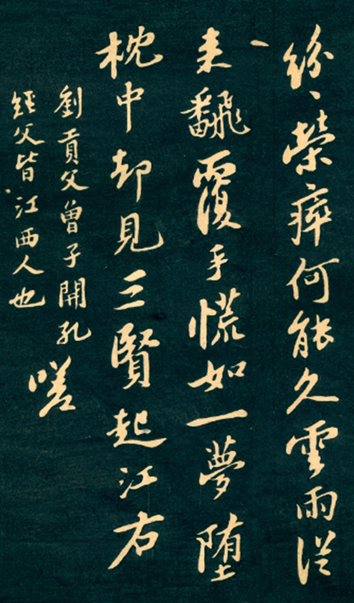 紛〻榮瘁何能久雲雨從
来飜覆手慌如一夢堕
枕中却見三賢起江右
劉貢父曾子開孔
經父皆江西人也
嗟